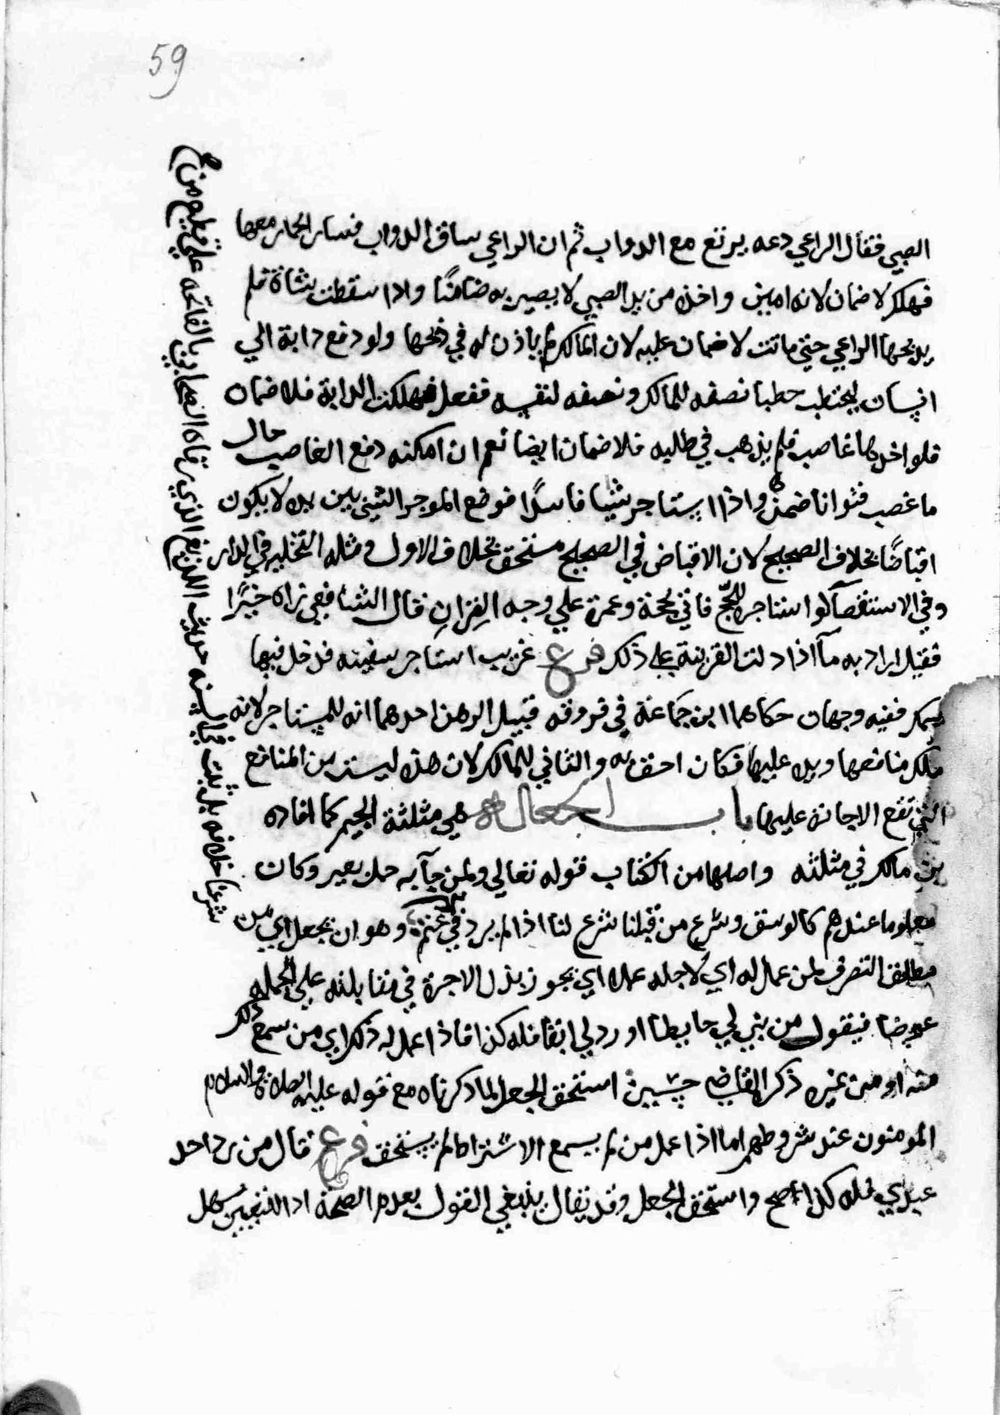 59
الصبي فقال الراعي دعه يرتع مع الدواب ثم ان الراعي ساق الدواب فسار الحمار معها
فهلك لا ضمان لانه امين واخذه من يد الصبي لا يصير به ضامنًا واذا سقطت شاة فلم
يذبحها الراعي حتي ماتت لا ضمان عليه لان المالك لم ياذن له في ذبحها ولو دفع دابة الي
انسان ليحتطب حطبا نصفه للمالك ونصفه لنفسه ففعل فهلكت الدابة فلا ضمان
فلو اخذها غاصب فلم يذهب في طلبه فلا ضمان ايضا نعم ان امكنه دفع الغاصب حال
ما غصب فتوانا ضمن واذا استاجر شيئا فاسدًا فوضع الموجر الشئ بين يديه لا يكون
اقباضًا بخلاف الصحيح لان الاقباض في الصحيح مستحق بخلاف الاول ومثله التخلية في الدار
وفي الاستقصآ لو استاجره للحج فاتي بحجة وعمرة علي وجه القِران قال الشافعي زاه خيرًا
فقيل اراد به مآ اذا دلت القرينة علي ذلك فرع غريب استاجر سفينه فدخل فيها
سمك ففيه وجهان حكاهما ابن جماعة في فروقه قبيل الرهن احدهما انه للمستاجر لانه
ملك منافعها ويده عليها فكان احق به والثاني للمالك لان هذه ليست من المنافع
التي تقع الاجارة عليها باب الجعالة هي مثلثة الجيم كما افاده
بن مالك في مثلثه واصلها من الكتاب قوله تعالي ولمن جآ به حمل بعير وكان
معلوما عندهم كالوسق وشرع من قبلنا شرع لنا اذا لم يرد في شرعنا خلافه بل ثبت
من يجعل اي وهو ان
مطلق التصرف لمن عمل له اي لاجله عملا اي يجوز بذل الاجرة في مقابلته علي الجمله
عوضا فيقول من بني لي حايطا او رد لي ابقا فله كذا فاذا عمله ذلك اي من سمع ذلك
منه او من غيره ذكر القاضي حسين استحق الجعل لما ذكرناه مع قوله عليه الصلاة والسلام
المومنون عند شروطهم اما اذا عمل من لم يسمع الاشتراط لم يستحق فرع قال من رد احد
عبدي فله كذا صح واستحق الجعل وقد يقال ينبغي القول بعدم الصحة اذ التعيين سهل
شرعنا خلافه بل ثبت حديث اللديغ الذي رقاه الصحابي بالفاتحه علي قطيع من غ